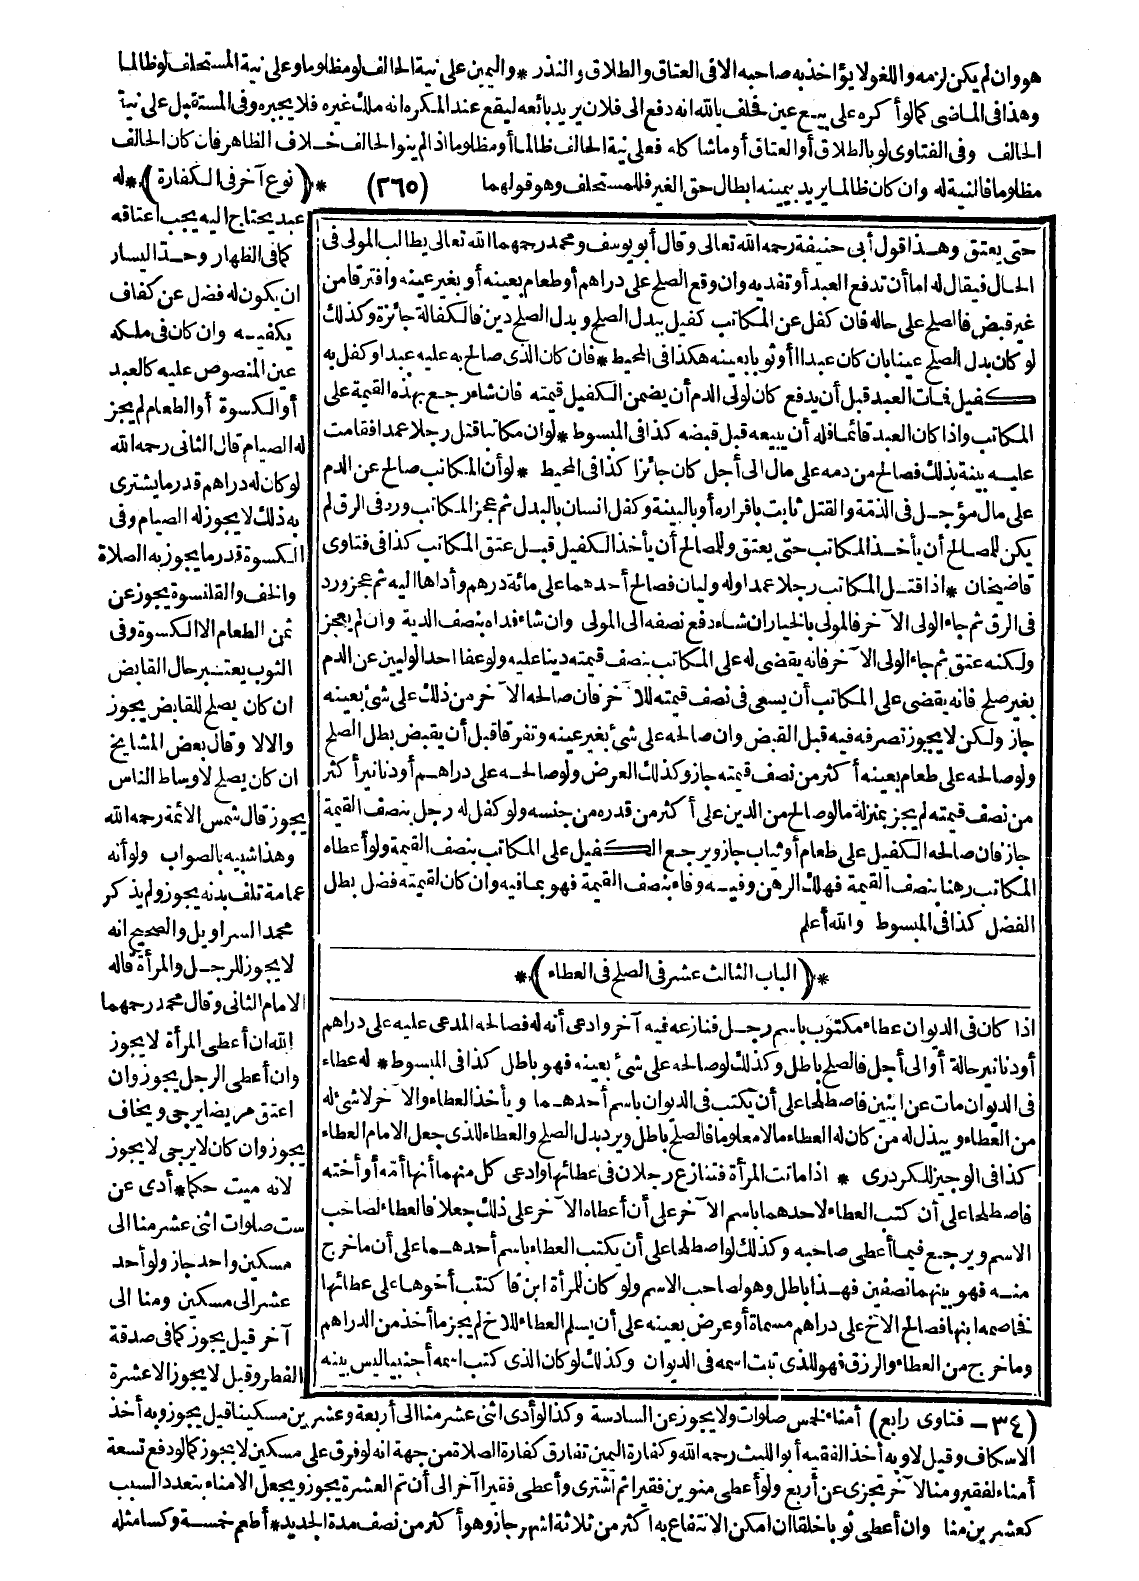 هو وان لم يكن لزمه واللغو لا يؤاخذ به صاحبه الا فى العتاق والطلاق والنذر * واليمين على نية الحالف لو مظلوما وعلى نية المستحلف لو ظالما
وهذا فى الماضى كما لو أكره على بيع عين فحلف بالله انه دفع الى فلان يريد بائعه ليقع عند المكره انه ملك غيره فلا يجبره وفى المستقبل على نية
الحالف وفى الفتاوى لو بالطلاق أو العتاق أو ماشاكله فعلى نية الحالف ظالما أو مظلوما اذا لم ينو الحالف خلاف الظاهر فان كان الحالف
مظلوما فالنية له وان كان ظالما يريد بيمينه ابطال حق الغير فللمستحلف وهو قولهما (٢٦٥) *(نوع آخر فى الكفارة)* له
عبد يحتاج اليه يجب اعتاقه
كما فى الظهار وحد اليسار
ان يكون له فضل عن كفاف
يكفيه وان كان فى ملكه
عين المنصوص عليه كالعبد
أو الكسوة أو الطعام لم يجز
له الصيام قال الثانى رحمه الله
لو كان له دراهم قدر ما يشترى
به ذلك لا يجوز له الصيام وفى
الكسوة قدر ما يجوز به الصلاة
والخف والقلنسوة يجوز عن
ثمن الطعام الا الكسوة وفى
الثوب يعتبر حال القابض
ان كان يصلح للقابض يجوز
والا لا وقال بعض المشايخ
ان كان يصلح لاوساط الناس
يجوز قال شمس الأئمة رحمه الله
وهذا شبيه بالصواب ولو أنه
عمامة تلف بدنه يجوز ولم يذكر
محمد السراويل والصحيح انه
لا يجوز للرجل والمرأة قاله
الامام الثانى وقال محمد رحمهما
الله ان أعطى المرأة لا يجوز
وان أعطى الرجل يجوز وان
اعتق مريضا يرجى ويخاف
يجوز وان كان لا يرجى لا يجوز
لانه ميت حكما * أدى عن
ست صلوات اثنى عشر منا الى
مسكين واحد جاز ولو أحد
عشر الى مسكين ومنا الى
آخر قيل يجوز كما فى صدقة
الفطر وقيل لا يجوز الا عشرة
حتى يعتق وهذا قول أبى حنيفة رحمه الله تعالى وقال أبو يوسف ومحمد رحمهما الله تعالى يطالب المولى فى
الحال فيقال له اما أن تدفع العبد أو تفديه وان وقع الصلح على دراهم أو طعام بعينه أو بغير عينه وافترقا من
غير قبض فالصلح على حاله فان كفل عن المكاتب كفيل ببدل الصلح وبدل الصلح دين فالكفالة جائزة وكذلك
لو كان بدل الصلح عينا بان كان عبدا أو ثوبا بعينه هكذا فى المحيط * فان كان الذى صالح به عليه عبدا وكفل به
كفيل فمات العبد قبل أن يدفع كان لولى الدم أن يضمن الكفيل قيمته فان شاء رجع بهذه القيمة على
المكاتب واذا كان العبد قائما فله أن يبيعه قبل قبضه كذا فى المبسوط * لو ان مكاتبا قتل رجلا عمدا فقامت
عليه بينة بذلك فصالح من دمه على مال الى أجل كان جائزا كذا فى المحيط * لو أن المكاتب صالح عن الدم
على مال مؤجل فى الذمة والقتل ثابت باقراره أو بالبينة وكفل انسان بالبدل ثم عجز المكاتب ورد فى الرق لم
يكن للمصالح أن يأخذ المكاتب حتى يعتق وللمصالح أن يأخذ الكفيل قبل عتق المكاتب كذا فى فتاوى
قاضيخان * اذا قتل المكاتب رجلا عمدا وله وليان فصالح أحدهما على مائة درهم وأداها اليه ثم عجز ورد
فى الرق ثم جاء الولى الآخر فالمولى بالخيار ان شاء دفع نصفه الى المولى وان شاء فداه بنصف الدية وان لم يعجز
ولكنه عتق ثم جاء الولى الآخر فانه يقضى له على المكاتب بنصف قيمته دينا عليه ولو عفا احد الوليين عن الدم
بغير صلح فانه يقضى على المكاتب أن يسعى فى نصف قيمته للآخر فان صالحه الآخر من ذلك على شئ بعينه
جاز ولكن لا يجوز تصرفه فيه قبل القبض وان صالحه على شئ بغير عينه وتفرقا قبل أن يقبض بطل الصلح
ولو صالحه على طعام بعينه أكثر من نصف قيمته جاز وكذلك العرض ولو صالحه على دراهم أو دنانير أكثر
من نصف قيمته لم يجز بمنزلة ما لو صالح من الدين على أكثر من قدره من جنسه ولو كفل له رجل بنصف القيمة
جاز فان صالحه الكفيل على طعام أو ثياب جاز ويرجع الكفيل على المكاتب بنصف القيمة ولو أعطاه
المكاتب رهنا بنصف القيمة فهلك الرهن وفيه وفاء بنصف القيمة فهو بما فيه وان كان لقيمته فضل بطل
الفضل كذا فى المبسوط والله أعلم
*(الباب الثالث عشر فى الصلح فى العطاء)*
اذا كان فى الديوان عطاء مكتوب باسم رجل فنازعه فيه آخر وادعى أنه له فصالحه المدعى عليه على دراهم
أو دنانير حالة أو الى أجل فالصلح باطل وكذلك لو صالحه على شئ بعينه فهو باطل كذا فى المبسوط * له عطاء
فى الديوان مات عن ابنين فاصطلحا على أن يكتب فى الديوان باسم أحدهما ويأخذ العطاء والآخر لا شئ له
من العطاء ويبذل له من كان له العطاء مالا معلوما فالصلح باطل ويرد بدل الصلح والعطاء للذى جعل الامام العطاء
كذا فى الوجيز للكردرى * اذا ماتت المرأة فتنازع رجلان فى عطائها وادعى كل منهما أنها أمه أو أخته
فاصطلحا على أن كتب العطاء لاحدهما باسم الآخر على أن أعطاه الآخر على ذلك جعلا فالعطاء لصاحب
الاسم ويرجع فيما أعطى صاحبه وكذلك لو اصطلحا على أن يكتب العطاء باسم أحدهما على أن ما خرج
منه فهو بينهما نصفين فهذا باطل وهو لصاحب الاسم ولو كان للمرأة ابن فاكتتب أخوها على عطائها
فخاصمه ابنها فصالح الاخ على دراهم مسماة أو عرض بعينه على أن يسلم العطاء للاخ لم يجز ما أخذ من الدراهم
وما خرج من العطاء والرزق فهو للذى ثبت اسمه فى الديوان وكذلك لو كان الذى كتب اسمه أجنبيا ليس بينه
(٣٤ - فتاوى رابع) أمناء لخمس صلوات ولا يجوز عن السادسة وكذا لو أدى اثنى عشر منا الى أربعة وعشرين مسكينا قيل يجوز وبه أخذ
الاسكاف وقيل لا وبه أخذ الفقيه أبو الليث رحمه الله وكفارة اليمين تفارق كفارة الصلاة من جهة انه لو فرق على مسكين لا يجوز كما لو دفع تسعة
أمناء لفقير ومنا لآخر تجزى عن أربع ولو أعطى منوين فقيرا ثم اشترى وأعطى فقيرا آخر الى أن تم العشرة يجوز ويجعل الامناء بتعدد السبب
كعشرين منا وان أعطى ثوبا خلقا ان امكن الانتفاع به اكثر من ثلاثة اشهر جاز وهو أكثر من نصف مدة الجديد * أطعم خمسة وكسا مثله